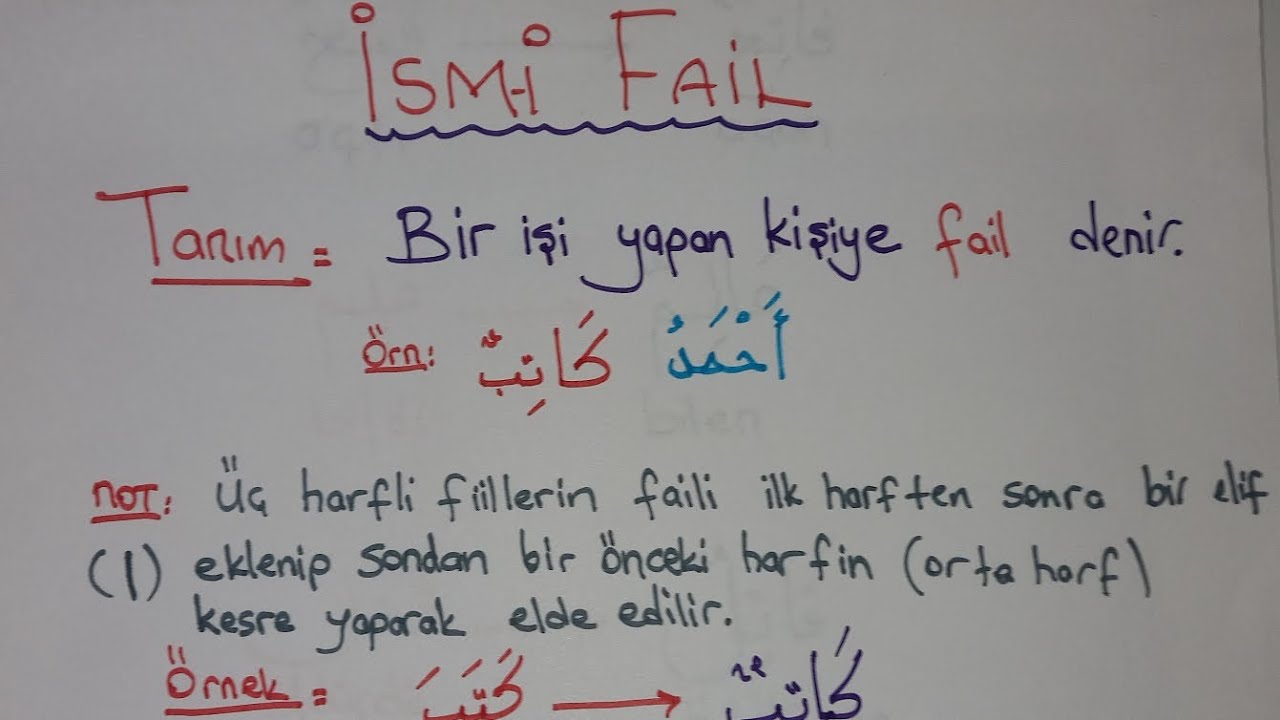 İSM-İ FAİL
Tanım = Bir işi yapan kişiye fail denir.
Örn: أَحْمَدُ كَاتِبٌ
NOT: Üç harfli fiillerin faili ilk harften sonra bir elif
(ا) eklenip sondan bir önceki harfin (orta harf)
kesre yaparak elde edilir.
Örnek = كَتَبَ → كَاتِبٌ